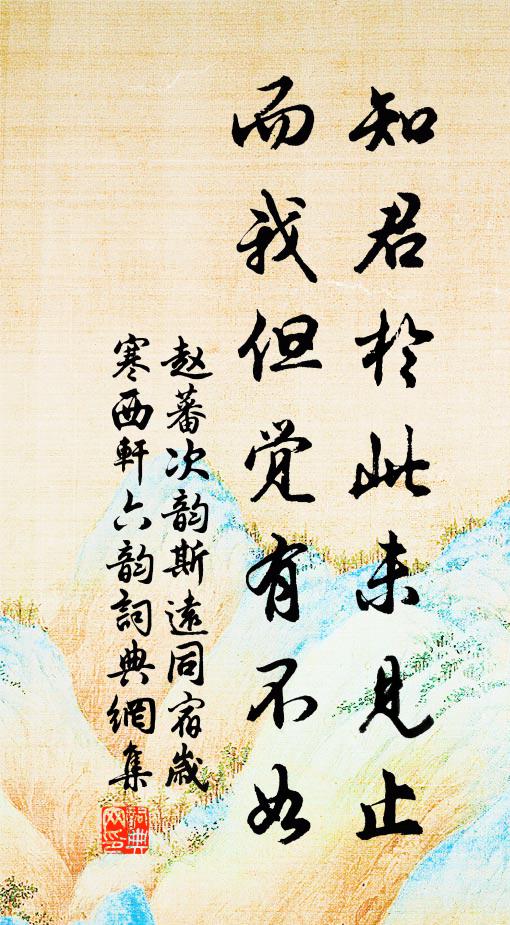 知君於此未見止
而我但觉有不如
赵蕃次韵斯遠同宿歲
寒西軒六韵詞典網集